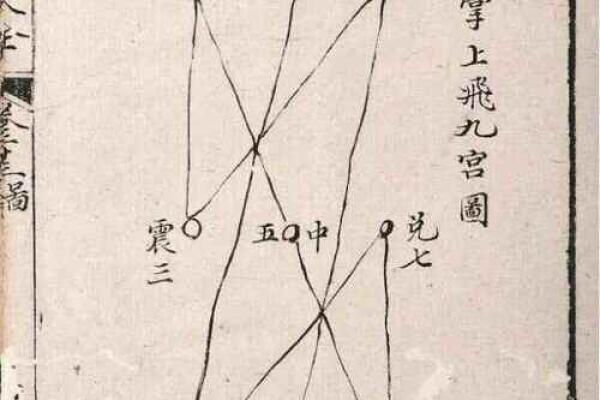 掌上飛九宮圖
兌七
五中
震三